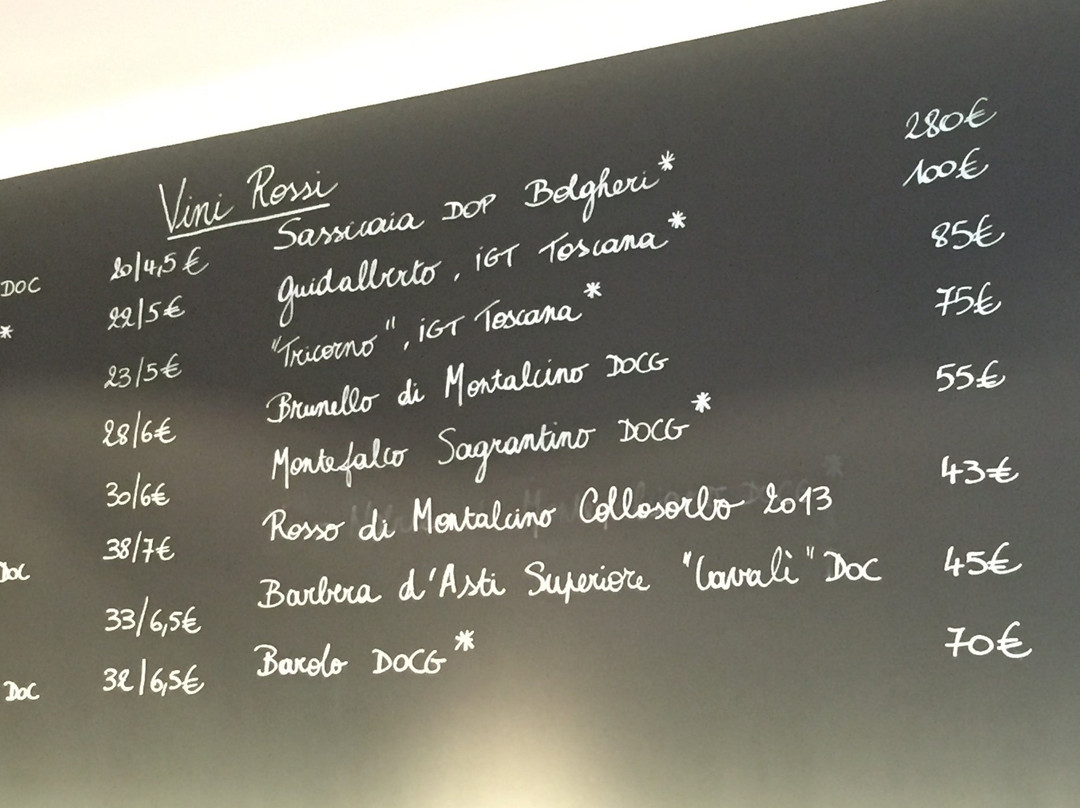 Vini Rossi
DOC 20/4,5€
* 22/5€
23/5€
28/6€
30/6€
DOC 38/7€
33/6,5€
DOC 32/6,5€
Sassicaia DOP Bolgheri* 280€
Guidalberto, IGT Toscana* 100€
"Tricorno", IGT Toscana* 85€
Brunello di Montalcino DOCG 75€
Montefalco Sagrantino DOCG* 55€
Rosso di Montalcino Collosorbo 2013 43€
Barbera d'Asti Superiore "Cavalì" DOC 45€
Barolo DOCG* 70€